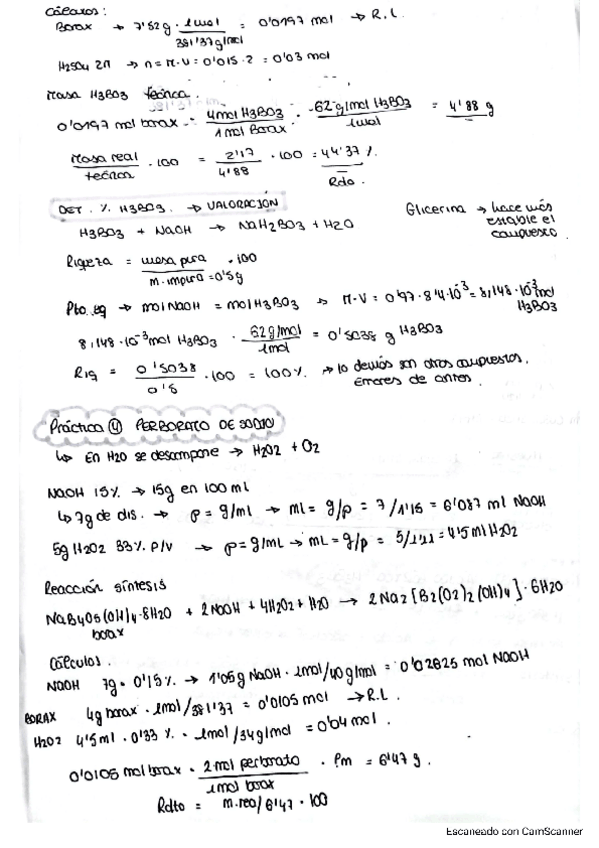 Cálculos:
Borax → 7'52g · 1mol / 381'37g/mol = 0'0197 mol → R.L.
H2SO4 2N → n = M·V = 0'015·2 = 0'03 mol
Masa H3BO3 teórica.
0'0197 mol borax · 4mol H3BO3 / 1 mol Borax · 62 g/mol H3BO3 / 1mol = 4'88 g
Masa real / teórica · 100 = 2'17 / 4'88 · 100 = 44'37 %. Rdo.
DET. % H3BO3. → VALORACIÓN
Glicerina → hace más estable el compuesto
H3BO3 + NaOH → NaH2BO3 + H2O
Riqueza = masa pura / m. impura = 0'5g · 100
Pto. eq → mol NaOH = mol H3BO3 → M·V = 0'97 · 8'4·10⁻³ = 8,148·10⁻³ mol H3BO3
8,148·10⁻³ mol H3BO3 · 62g/mol / 1mol = 0'5038 g H3BO3
Riq = 0'5038 / 0'5 · 100 = 100%. → lo demás son otros compuestos. Errores de antes.
Práctica ④ PERBORATO DE SODIO
↳ En H2O se descompone → H2O2 + O2
NaOH 15% → 15g en 100 ml
↳ 7g de dis. → ρ = g/mL → ml = g/ρ = 7/1'15 = 6'087 ml NaOH
5g H2O2 33% P/V → ρ = g/mL → mL = g/ρ = 5/1'11 = 4'5 ml H2O2
Reacción síntesis
NaB4O5(OH)4·8H2O + 2NaOH + 4H2O2 + H2O → 2Na2[B2(O2)2(OH)4]·6H2O
borax
Cálculos.
NaOH 7g · 0'15% → 1'05g NaOH · 1mol/40g/mol = 0'02625 mol NaOH
BORAX 4g borax · 1mol/381'37 = 0'0105 mol → R.L.
H2O2 4'5ml · 0'33 % · 1mol/34g/mol = 0'04 mol.
0'0105 mol borax · 2mol perborato / 1mol borax · Pm = 6'47 g.
Rdto = m.rea/6'47 · 100
Escaneado con CamScanner